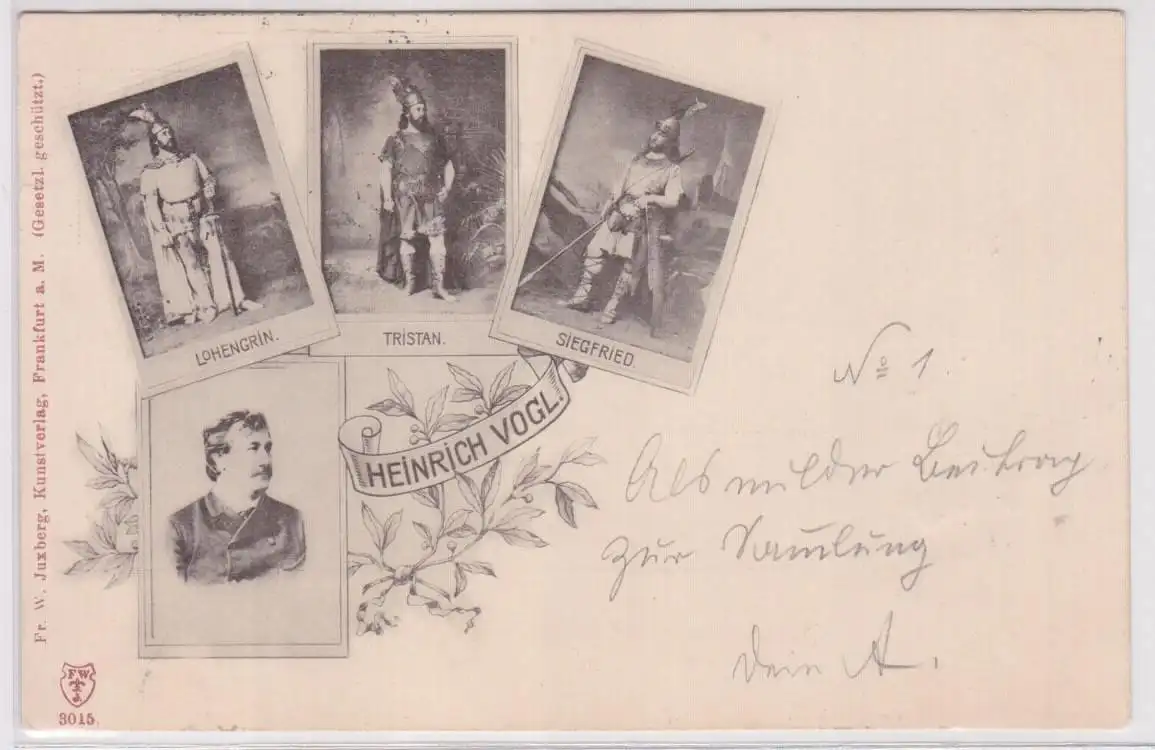 Fr. W. Juxberg, Kunstverlag, Frankfurt a. M. (Gesetzl. geschützt.)
LOHENGRIN.
TRISTAN.
SIEGFRIED.
HEINRICH VOGL.
No 1.
Als milder Beitrag
zur Samlung
Dein A.
F W
J.
3015.